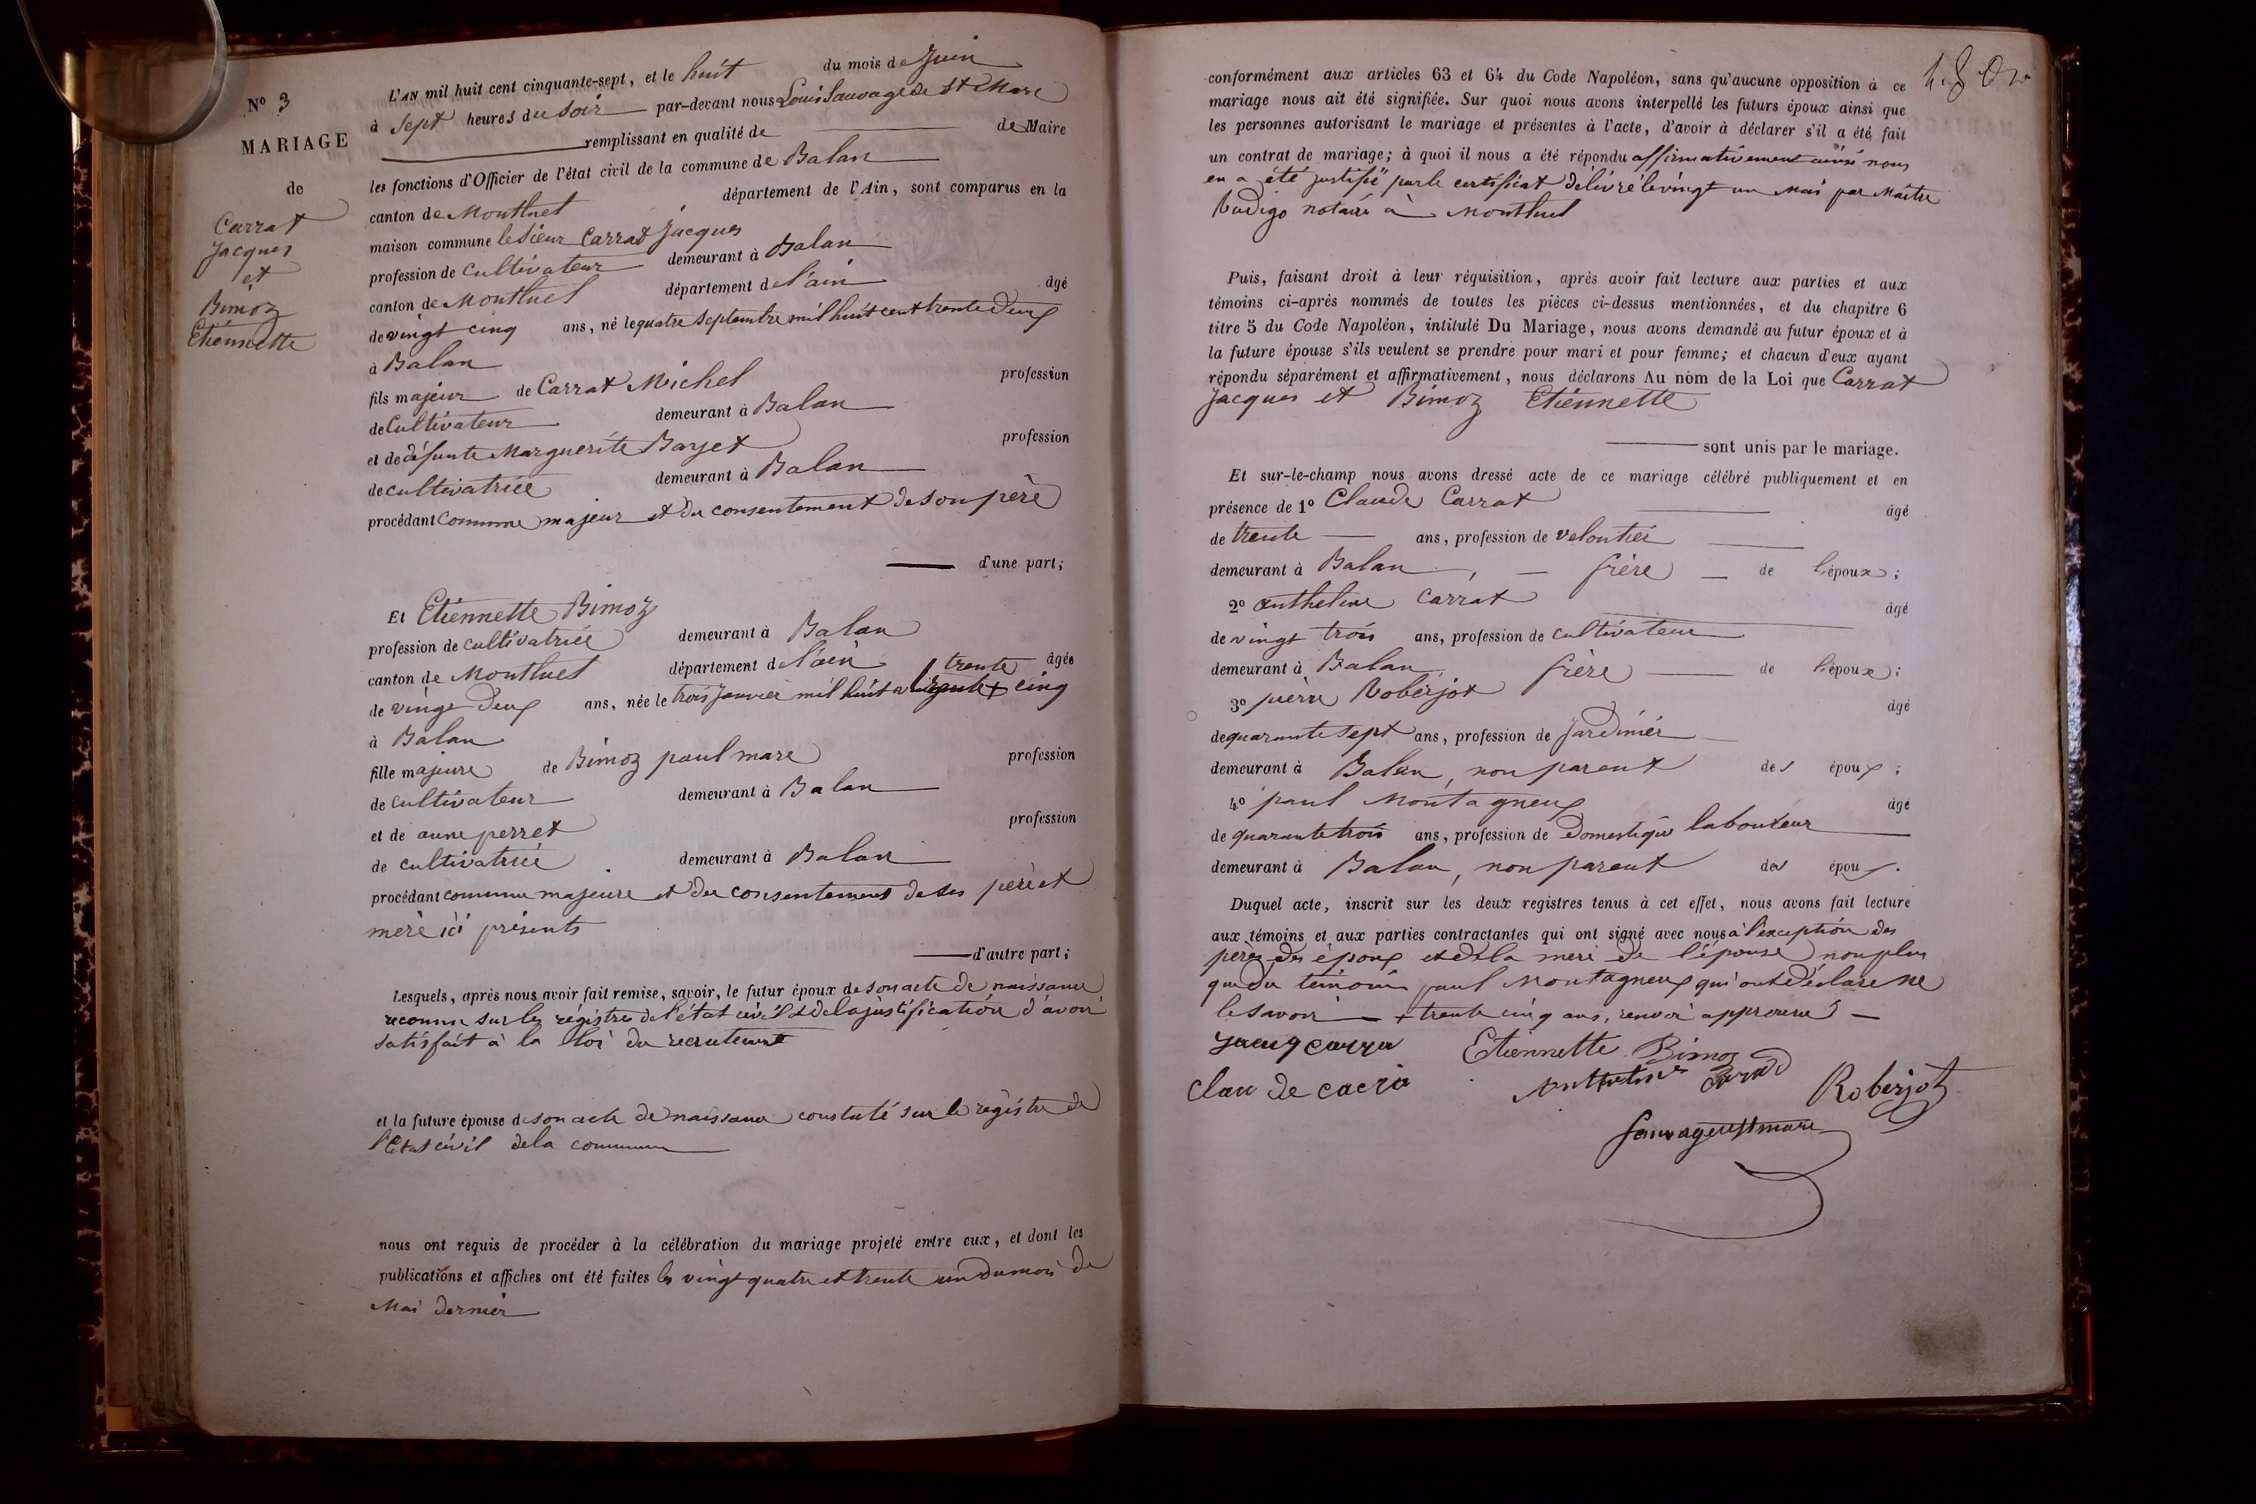 N° 3
MARIAGE
de
Carrat
Jacques
et
Bimoz
Etiennette
L'AN mil huit cent cinquante-sept, et le huit du mois de Juin
à sept heures du soir par-devant nous Louis Sauvage de St Marc
remplissant en qualité de de Maire
les fonctions d'Officier de l'état civil de la commune de Balan
canton de Montluel département de l'Ain, sont comparus en la
maison commune le sieur Carrat Jacques
profession de cultivateur demeurant à Balan
canton de Montluel département de l'ain âgé
de vingt cinq ans, né le quatre septembre mil huit cent trente deux
à Balan
fils majeur de Carrat Michel profession
de Cultivateur demeurant à Balan
et de défunte Marguerite Bayet profession
de cultivatrice demeurant à Balan
procédant comme majeur et du consentement de son père
d'une part;
Et Etiennette Bimoz
profession de cultivatrice demeurant à Balan
canton de Montluel département de l'ain âgée
de vingt deux ans, née le trois janvier mil huit cent trente cinq
à Balan
fille majeure de Bimoz paul marc profession
de cultivateur demeurant à Balan
et de anne perret profession
de cultivatrice demeurant à Balan
procédant comme majeure et du consentement de ses père et
mère ici présents
d'autre part;
Lesquels, après nous avoir fait remise, savoir, le futur époux de son acte de naissance
reconnu sur les régistres de l'état civil et de la justification d'avoir
satisfait à la loi du recrutement
et la future épouse de son acte de naissance constaté sur le régistre de
l'Etat civil de la commune
nous ont requis de procéder à la célébration du mariage projeté entre eux, et dont les
publications et affiches ont été faites les vingt quatre et trente un du mois de
Mai dernier
conformément aux articles 63 et 64 du Code Napoléon, sans qu'aucune opposition à ce
mariage nous ait été signifiée. Sur quoi nous avons interpellé les futurs époux ainsi que
les personnes autorisant le mariage et présentes à l'acte, d'avoir à déclarer s'il a été fait
un contrat de mariage; à quoi il nous a été répondu affirmativement ainsi nous
en a été justifié par le certificat délivré le vingt un Mai par Maître
Rodigo notaire à Montluel
Puis, faisant droit à leur réquisition, après avoir fait lecture aux parties et aux
témoins ci-après nommés de toutes les pièces ci-dessus mentionnées, et du chapitre 6
titre 5 du Code Napoléon, intitulé Du Mariage, nous avons demandé au futur époux et à
la future épouse s'ils veulent se prendre pour mari et pour femme; et chacun d'eux ayant
répondu séparément et affirmativement, nous déclarons Au nom de la Loi que Carrat
Jacques et Bimoz Etiennette
sont unis par le mariage.
Et sur-le-champ nous avons dressé acte de ce mariage célébré publiquement et en
présence de 1° Claude Carrat âgé
de trente ans, profession de veloutier
demeurant à Balan, frère de l'époux;
2° anthelme Carrat âgé
de vingt trois ans, profession de cultivateur
demeurant à Balan, frère de l'époux;
3° pierre Roberjot âgé
de quarante sept ans, profession de Jardinier
demeurant à Balan, non parent des époux;
4° paul Montagneux âgé
de quarante trois ans, profession de Domestique laboureur
demeurant à Balan, non parent des époux.
Duquel acte, inscrit sur les deux registres tenus à cet effet, nous avons fait lecture
aux témoins et aux parties contractantes qui ont signé avec nous à l'exception des
pères des époux et de la mère de l'épouse non plus
que du témoin paul Montagneux qui ont déclaré ne
le savoir + trente cinq ans, renvoi approuvé
Etiennette Bimoz
Roberjot